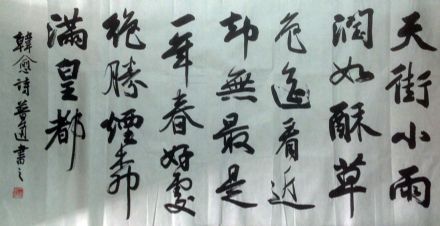 天街小雨
潤如酥草
色遥看近
却無最是
一年春好處
絶勝煙柳
滿皇都
韓愈詩 書之